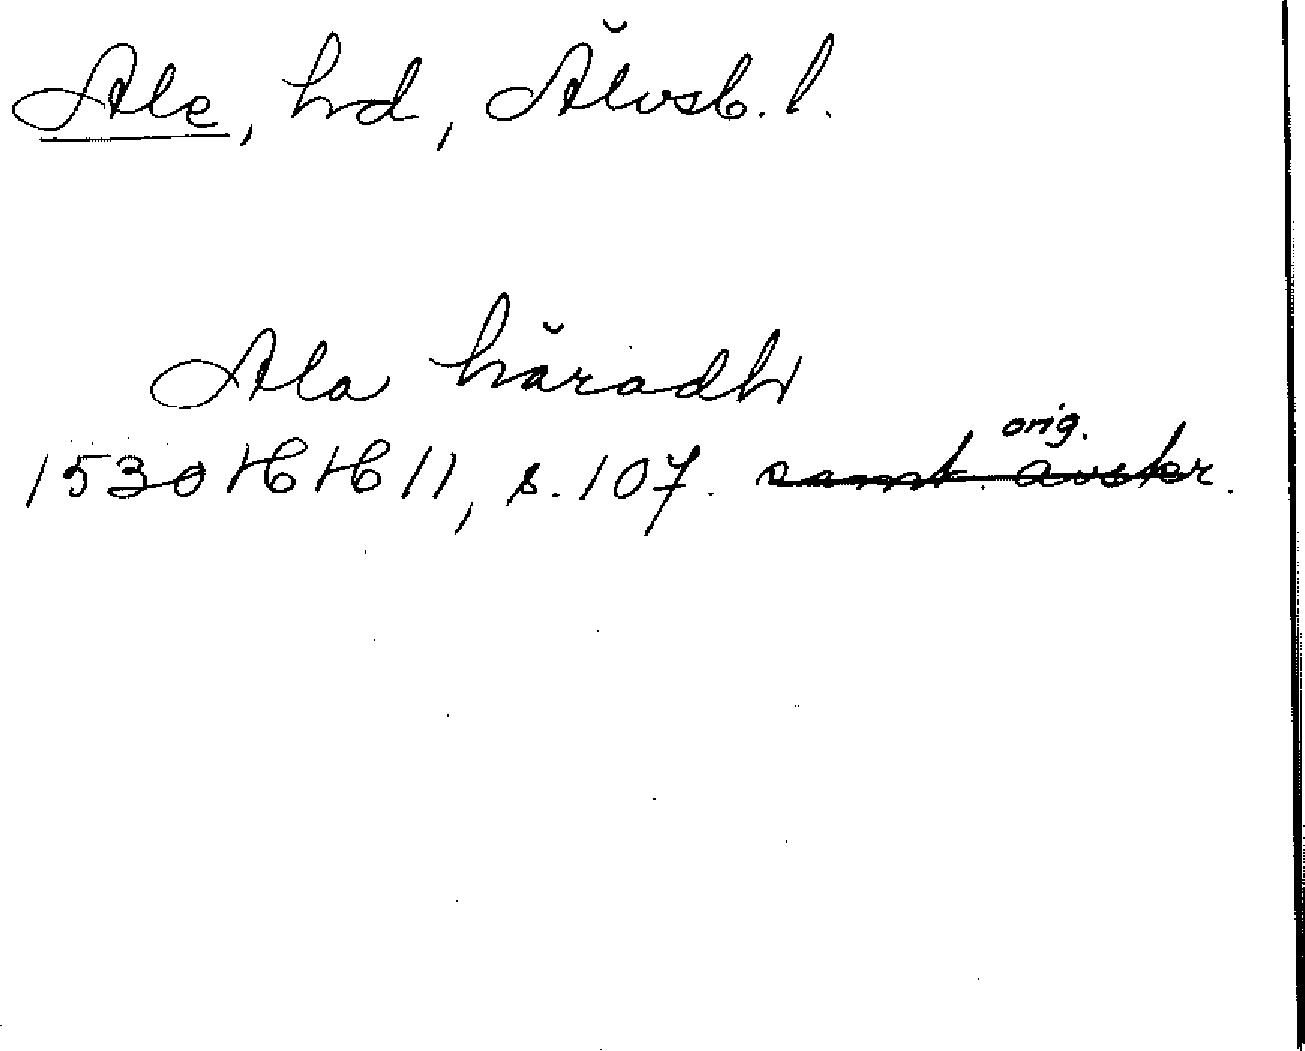 Ale, hd, Älvsb. l.
Ala häradh
orig.
1530 HH 11, s. 107. samt. avskr.